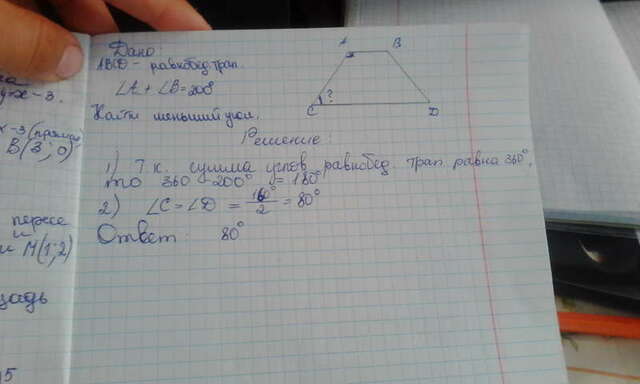 Дано:
ABCD - равнобед. трап.
∠A + ∠B = 200
Найти меньший угол.
A B
C ? D
Решение:
1) Т.к. сумма углов равнобед. трап. равна 360°,
то 360 - 200° = 180°
2) ∠C = ∠D = 160°/2 = 80°
Ответ: 80°
ух - 3.
х - 3 (прямая
B(3; 0)
пересе
и
и M(1; 2)
щадь
5